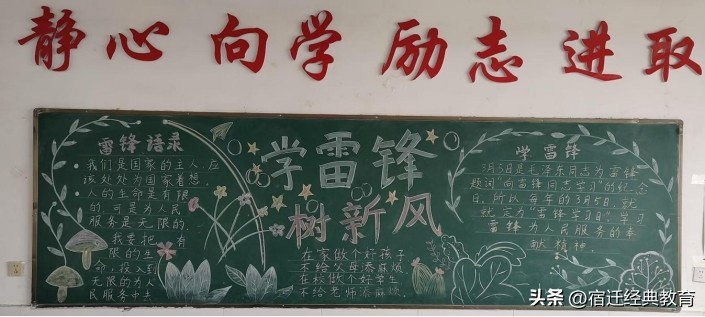 静心 向学 励志 进取
雷锋语录
我们是国家的主人应
该处处为国家着想.
人的生命是有限
的.可是为人民
服务是无限的.
我要把 有
限的生
命,投入到
无限的为人
民服务中去
学雷锋
树新风
在家做个好孩子
不给父母添麻烦
在校做个好学生
不给老师添麻烦.
学雷锋
3月5日是毛泽东同志为雷锋
题词"向雷锋同志学习"的纪念
日,所以每年的3月5日,就
就定为"雷锋学习日",学习
雷锋为人民服务的奉
献精神.
头条@宿迁经典教育